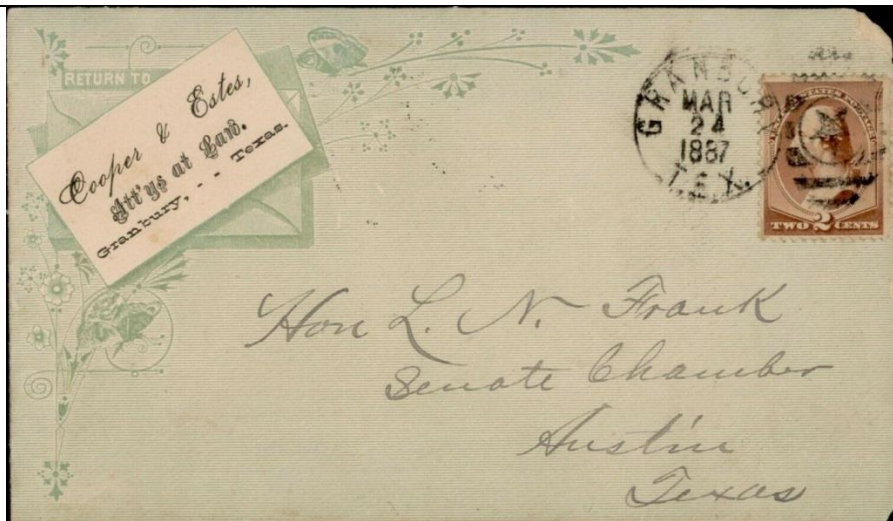 RETURN TO
Cooper & Estes,
Att'ys at Law.
Granbury, - - Texas.
GRANBURY
MAR
24
1887
TEX.
TWO 2 CENTS
Hon L. N. Frank
Senate Chamber
Austin
Texas